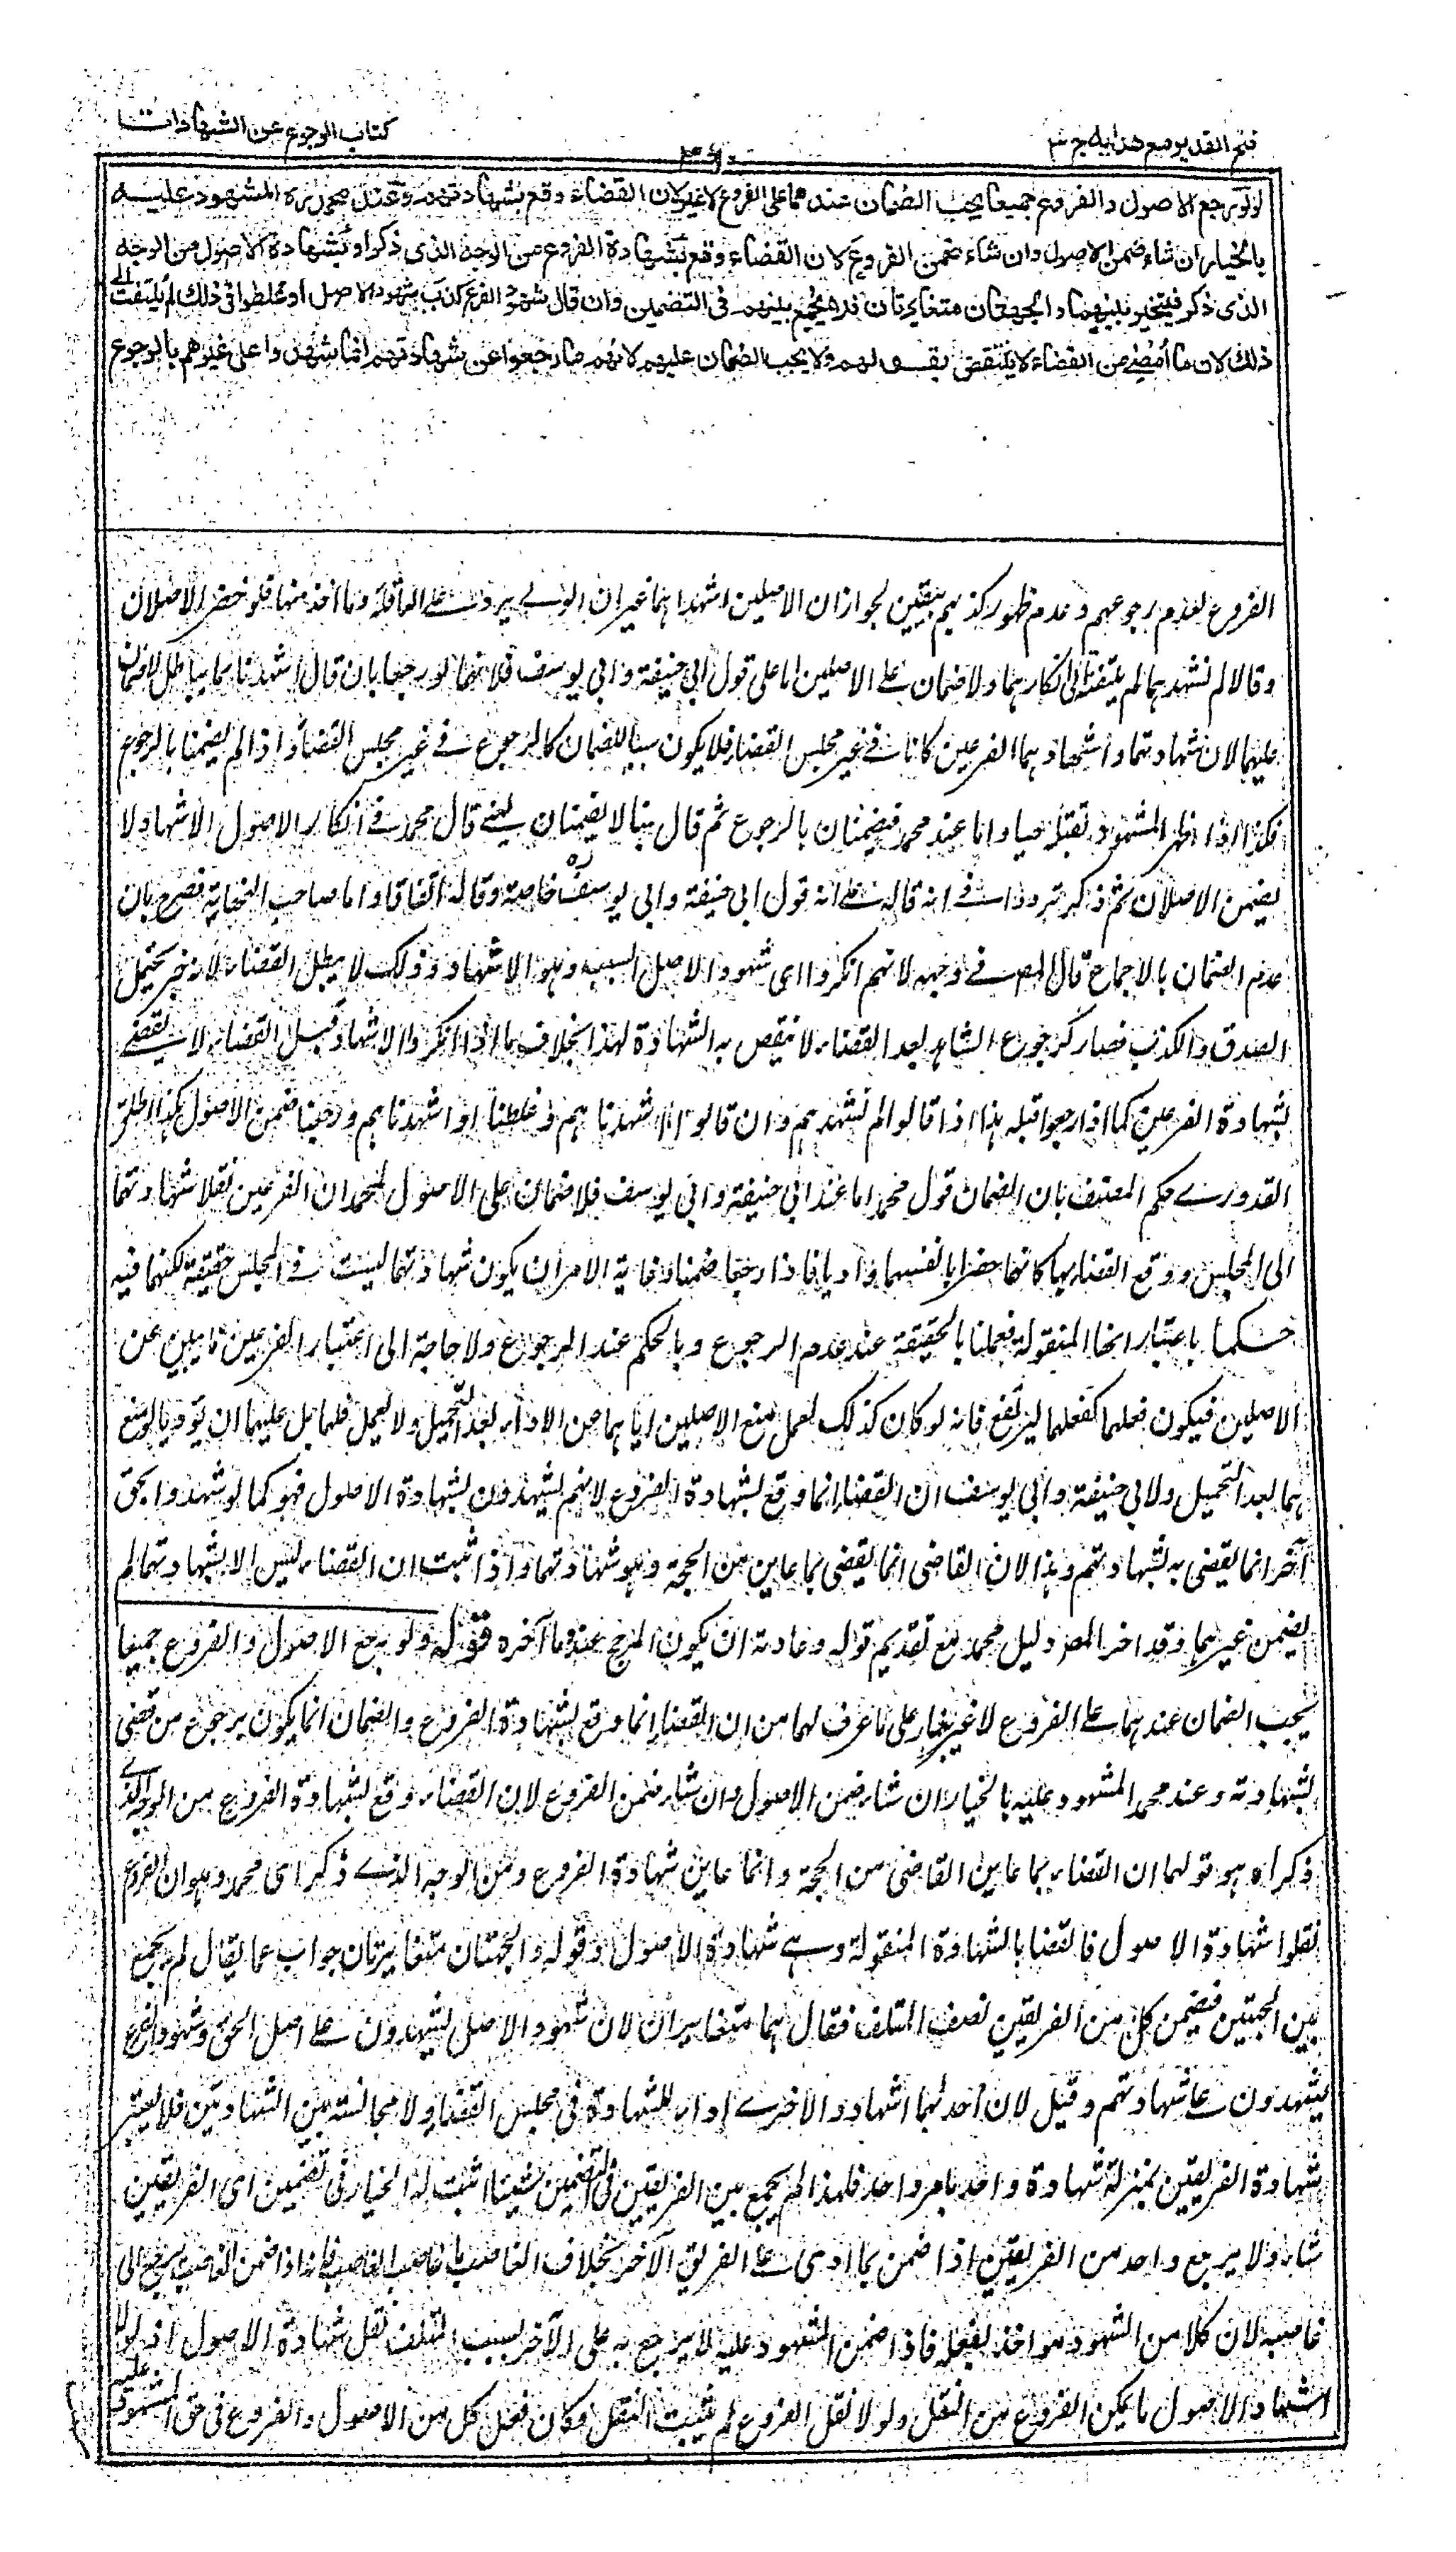 فتح القدير مع هدايه ج ٣
كتاب الرجوع عن الشهادات
ولو رجع الاصول والفروع جميعا يجب الضمان عندهما على الفروع لا غير لان القضاء وقع بشهادتهم وعند محمد ره المشهود عليه
بالخيار ان شاء ضمن الاصول وان شاء ضمن الفروع لان القضاء وقع بشهادة الفروع من الوجه الذى ذكرا وبشهادة الاصول من الوجه
الذى ذكر فيتخير بينهما والجهتان متغايرتان فلا يجمع بينهم فى التضمين وان قال شهود الفرع كذب شهود الاصل او غلطوا فى ذلك لم يلتفت الى
ذلك لان ما امضى من القضاء لا ينتقض بقولهم ولا يجب الضمان عليهم لانهم ما رجعوا عن شهادتهم انما شهدوا على غيرهم بالرجوع
الفروع لعدم رجوعهم وعدم ظهور كذبهم بيقين لجواز ان الاصلين اشهداهما غير ان الولى يرد على العاقلة ما اخذ منها فلو حضر الاصلان
وقالا لم نشهدهما لم يلتفت الى انكارهما ولا ضمان على الاصلين اما على قول ابى حنيفة وابى يوسف فلانهما لو رجعا بان قالا اشهدناهما بباطل لا ضمان
عليهما لان شهادتهما واشهادهما الفرعين كانا فى غير مجلس القضاء فلا يكون سببا للضمان كالرجوع فى غير مجلس القضاء واذا لم يضمنا بالرجوع
فكذا اذا ظهر المشهود بقتله حيا واما عند محمد فيضمنان بالرجوع ثم قال هنا لا يضمنان يعنى قال محمد فى انكار الاصول الاشهاد لا
يضمن الاصلان ثم ذكر ترددا فى انه قاله على انه قول ابى حنيفة وابى يوسف ره خاصة وقاله اتفاقا واما صاحب النهاية فصرح بان
عدم الضمان بالاجماع قال المص فى وجهه لانهم انكروا اى شهود الاصل السبب وهو الاشهاد وذلك لا يبطل القضاء لانه خبر يحتمل
الصدق والكذب فصار كرجوع الشاهد بعد القضاء لا ينقض به الشهادة لهذا بخلاف ما اذا انكروا الاشهاد قبل القضاء لا يقضى
بشهادة الفرعين كما اذا رجعوا قبله هذا اذا قالوا لم نشهدهم وان قالوا اشهدناهم وغلطنا او اشهدناهم ورجعنا ضمن الاصول هكذا اطلق
القدورى حكم المصنف بان الضمان قول محمد اما عند ابى حنيفة وابى يوسف فلا ضمان على الاصول لمحمد ان الفرعين نقلا شهادتهما
الى المجلس ووقع القضاء بها كانهما حضرا بانفسهما واديا فاذا رجعا ضمنا وغاية الامر ان يكون شهادتهما ليست فى المجلس حقيقة لكنها فيه
حكما باعتبار انها المنقولة فعملنا بالحقيقة عند عدم الرجوع وبالحكم عند الرجوع ولا حاجة الى اعتبار الفرعين نائبين عن
الاصلين فيكون فعلهما كفعلهما ليرتفع فانه لو كان كذلك لعمل منع الاصلين اياهما عن الاداء بعد التحميل ولا يعمل فلهما بل عليهما ان يؤديا لو منعـ
هما بعد التحميل ولابى حنيفة وابى يوسف ان القضاء انما وقع بشهادة الفروع لانهم يشهدون بشهادة الاصول فهو كما لو شهدوا بحق
آخر انما يقضى به بشهادتهم وهذا لان القاضى انما يقضى بما عاين من الحجة وهو شهادتهما واذا ثبت ان القضاء ليس الا بشهادتهما لم
يضمن غيرهما وقد اخر المص دليل محمد مع تقديم قوله وعادته ان يكون المرجح عنده ما آخره قوله ولو رجع الاصول والفروع جميعا
يجب الضمان عندهما على الفروع لا غير بناء على ما عرف لهما من ان القضاء انما وقع بشهادة الفروع والضمان انما يكون برجوع من قضى
بشهادته وعند محمد المشهود عليه بالخيار ان شاء ضمن الاصول وان شاء ضمن الفروع لان القضاء وقع بشهادة الفروع من الوجه الذى
ذكراه هو قولهما ان القضاء بما عاين القاضى من الحجة وانما عاين شهادة الفروع ومن الوجه الذى ذكر اى محمد وهو ان الفروع
نقلوا شهادة الاصول فالقضاء بالشهادة المنقولة وهى شهادة الاصول وقوله والجهتان متغايرتان جواب عما يقال لم لم يجمع
بين الجهتين فيضمن كل من الفريقين نصف المتلف فقال هما متغايران لان شهود الاصل يشهدون على اصل الحق وشهود الفرع
يشهدون على شهادتهم وقيل لان احدهما اشهاد والاخرى اداء للشهادة فى مجلس القضاء ولا مجانسة بين الشهادتين فلا يعتبر
شهادة الفريقين بمنزلة شهادة واحدة بامر واحد فلهذا لم يجمع بين الفريقين فى التضمين بشيئنا اثبت له الخيار فى تضمين اى الفريقين
شاء ولا يرجع واحد من الفريقين اذا ضمن بما ادى على الفريق الآخر بخلاف الغاصب مع غاصب الغاصب فانه اذا ضمن الغاصب يرجع الى
غاصبه لان كلا من الشهود مواخذ بفعله فاذا ضمن المشهود عليه لا يرجع به على الآخر بسبب المتلف نقل شهادة الاصول اذ لولا
اشهاد الاصول ما يمكن الفروع من النقل ولولا نقل الفروع لم يثبت النقل وكان فعل كل من الاصول والفروع فى حق المشهود عليه